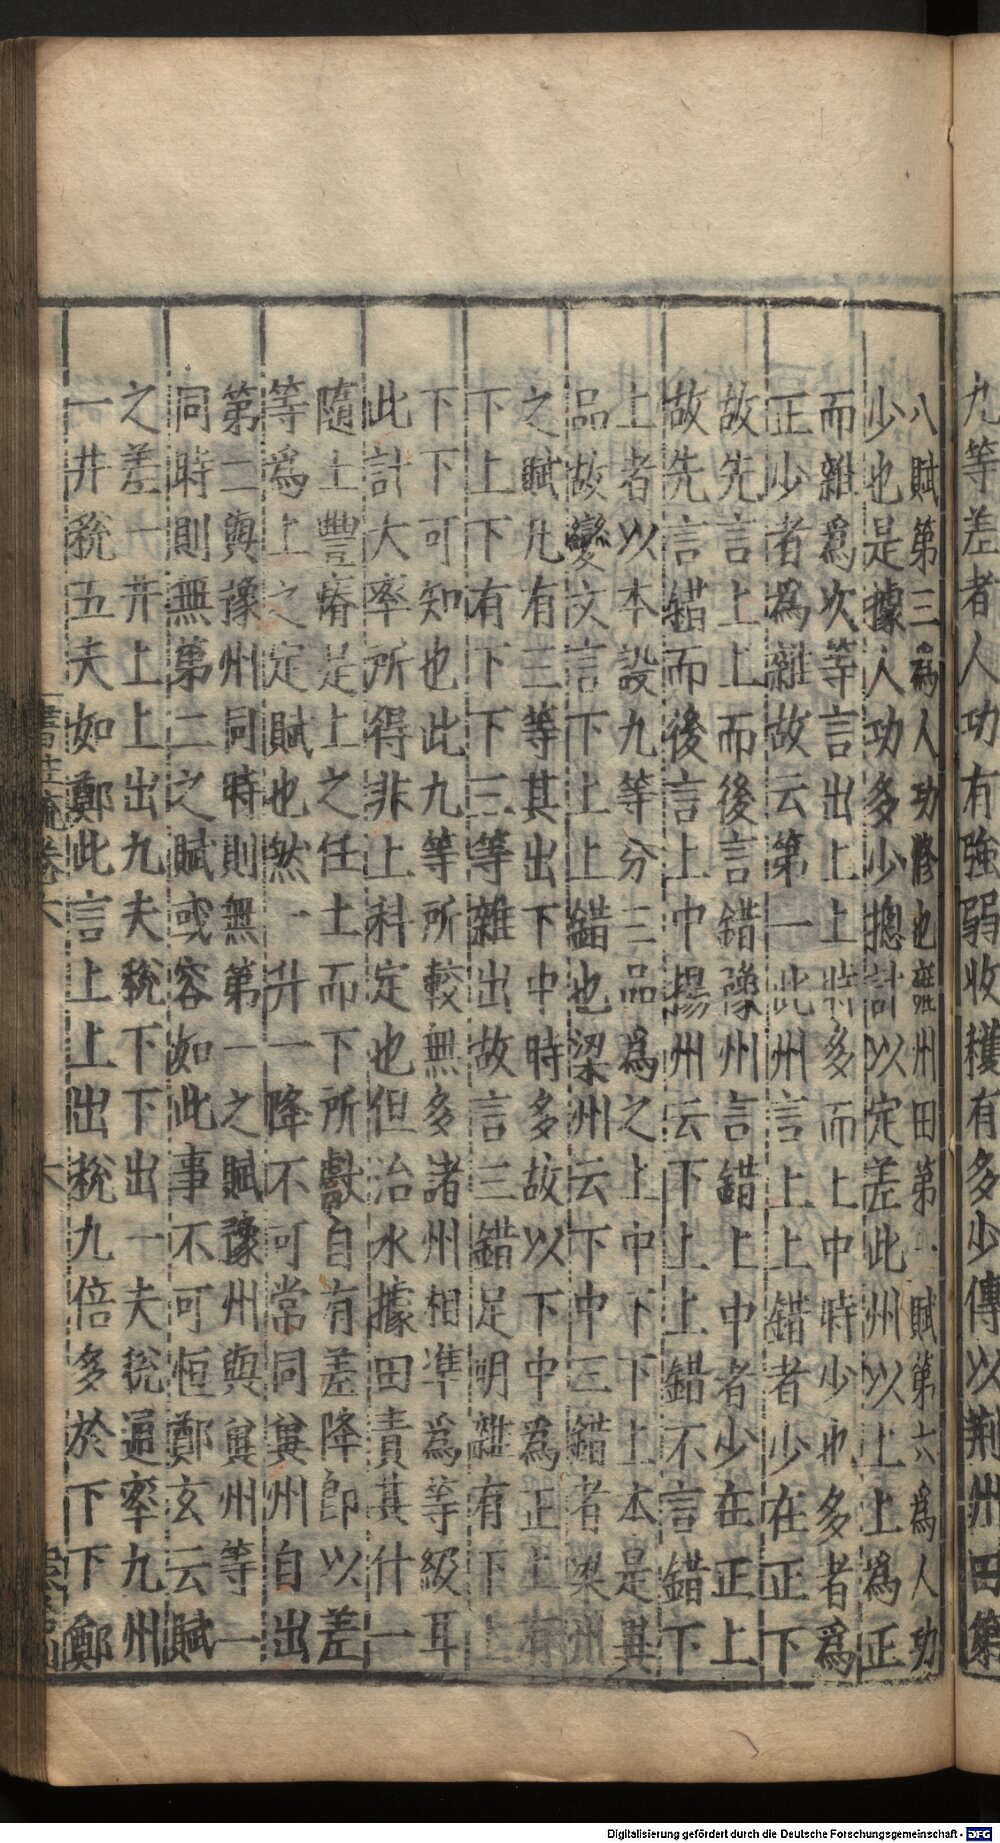 九等差者人功有強弱收穫有多少傳以荆州田第
八賦第三爲人功修也雍州田第一賦第六爲人功
少也是據人功多少揔計以定差此州以上上爲正
而雜爲次等言出上上時多而上中時少也多者爲
正少者爲雜故云第一此州言上上錯者少在正下
故先言上上而後言錯豫州言錯上中者少在正上
故先言錯而後言上中揚州云下上上錯不言錯下
上者以本設九等分三品爲之上中下下上本是異
品故變文言下上上錯也梁州云下中三錯者梁州
之賦凡有三等其出下中時多故以下中爲正上有
下上下有下下三等雜出故言三錯足明雜有下上
下下可知也此九等所較無多諸州相準爲等級耳
此計大率所得非上科定也但治水據田責其什一
隨土豐瘠是上之任土而下所獻自有差降即以差
等爲上之定賦也然一升一降不可常同冀州自出
第二與豫州同時則無第一之賦豫州與冀州等一
同時則無第二之賦或容如此事不可恒鄭玄云賦
之差一井上上出九夫稅下下出一夫稅通率九州
一井稅五夫如鄭此言上上出稅九倍多於下下鄭
書注疏卷六
六
Digitalisierung gefördert durch die Deutsche Forschungsgemeinschaft - DFG